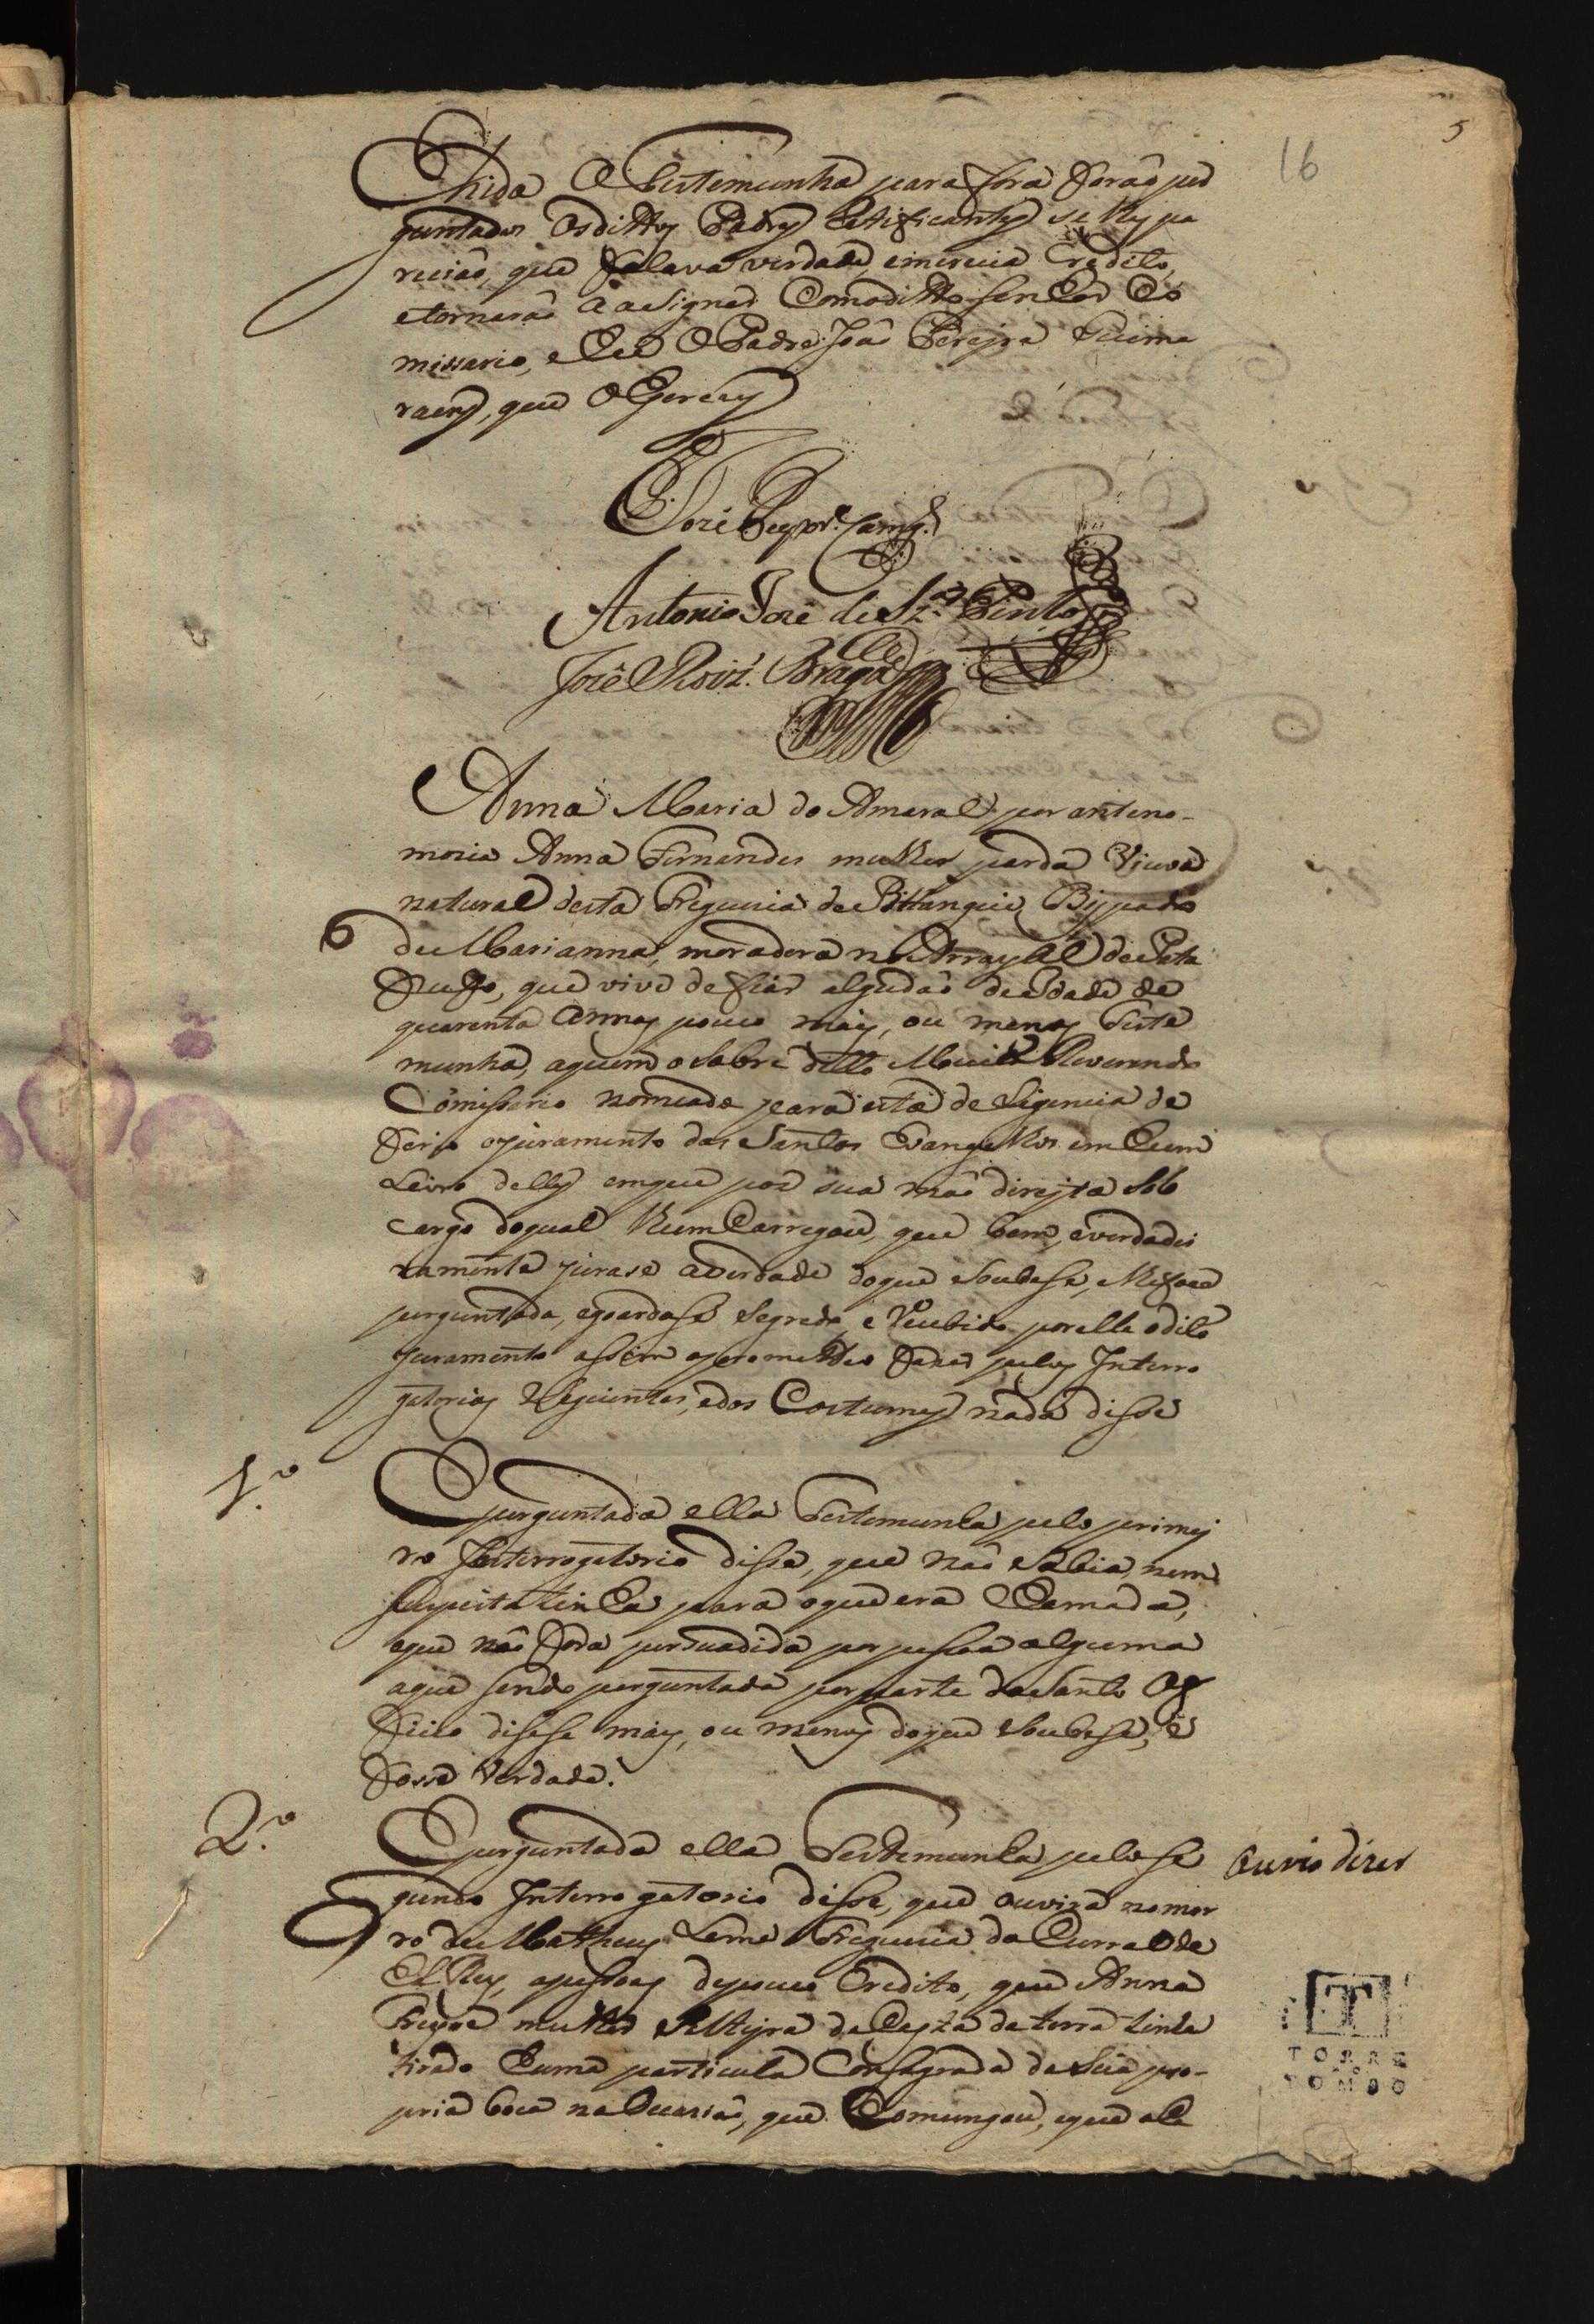 16
5
E hida a Testemunha para fora foraõ per
guntados os dittos Padres Ratificantes se lhes pa
reciaõ, que falava verdade, e merecia Credito,
e tornaraõ a asignar Com o ditto Senhor Co
missario, e Eu O Padre Joaõ Pereyra Guima
raens, que o Escrevy
Antonio José de Sz.ª Pinto
José Roiz.' Braga
Anna Maria do Amaral por anteno-
mozia Anna Fernandes mulher parda Viuva
natural desta Freguezia de Pittanguie, Bispado
de Marianna, moradora no Arrayal de Pata
Fufo, que vive de fiar algudaõ de Idade de
quarenta Annos pouco mais, ou menos Teste
munha, a quem o sobre ditto Muito Reverendo
Comissario nomeado para esta deligencia de
ferio o juramento dos Santos Evangelhos em hum
Livro delles em que pos sua maõ direyta sob
cargo do qual lhe emCarregou, que bem, e verdadei
ramente jurase a verdade do que soubesse, e lhe fosse
perguntada, e goardasse segredo, e Recebido por ella o dito
juramento assim o prometteo fazer pelos Interro
gatorios seguintes, e dos Costumes nada disse
1.º
E perguntada ella Testemunha pelo primei
ro Interrogatorio disse, que naõ sabia, nem
suspeita tinha para o que era Chamada,
e que naõ fora persuadida por pessoa alguma
a que sendo perguntada por parte do Santo Of
ficio disesse mais, ou menos do que soubesse, e
fosse verdade.
2.º
E perguntada ella Testemunha pelo se
gundo Interrogatorio disse, que ouvira no mor
ro de Matheus Leme Freguezia do Curral de
El Rey, a pessoas de pouco Credito, que Anna
mulher solteyra da Costa da terra tinha
tirado huma particula Consagrada da sua pro-
pria boca na Occasiaõ, que Comungou, e que a
Ouvio dizer
T
TORRE
DO
TOMBO